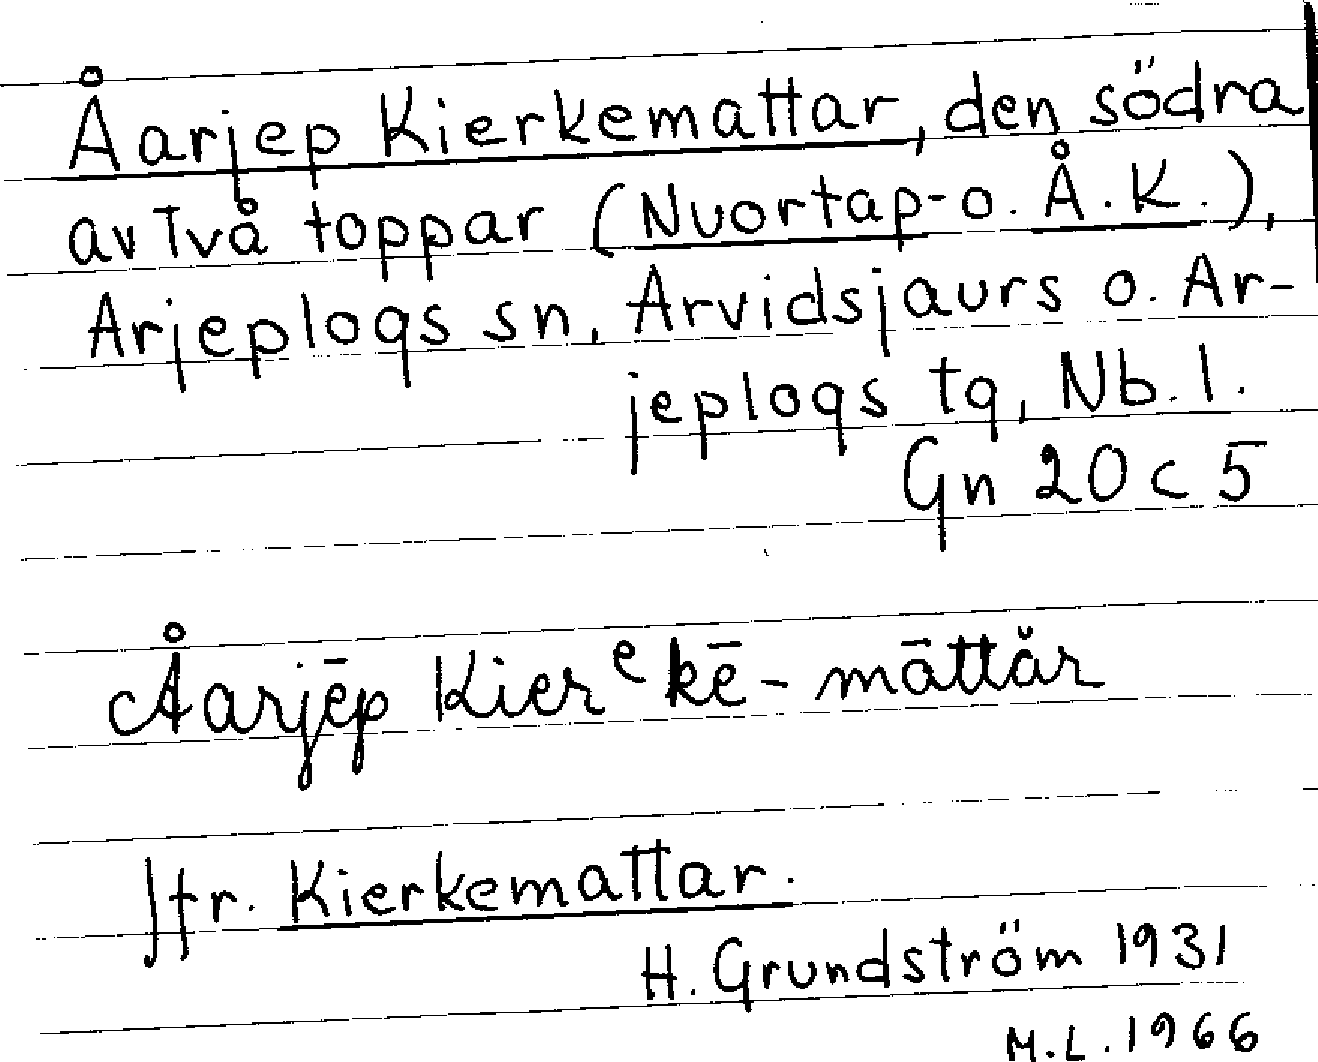 Åarjep Kierkemattar, den södra
av två toppar (Nuortap- o. Å. K.),
Arjeplogs sn, Arvidsjaurs o. Ar-
jeplogs tg, Nb. l.
Gn 20 c 5
Åarjēp Kierᵉkē-māttăr
Jfr. Kierkemattar.
H. Grundström 1931
M.L. 1966